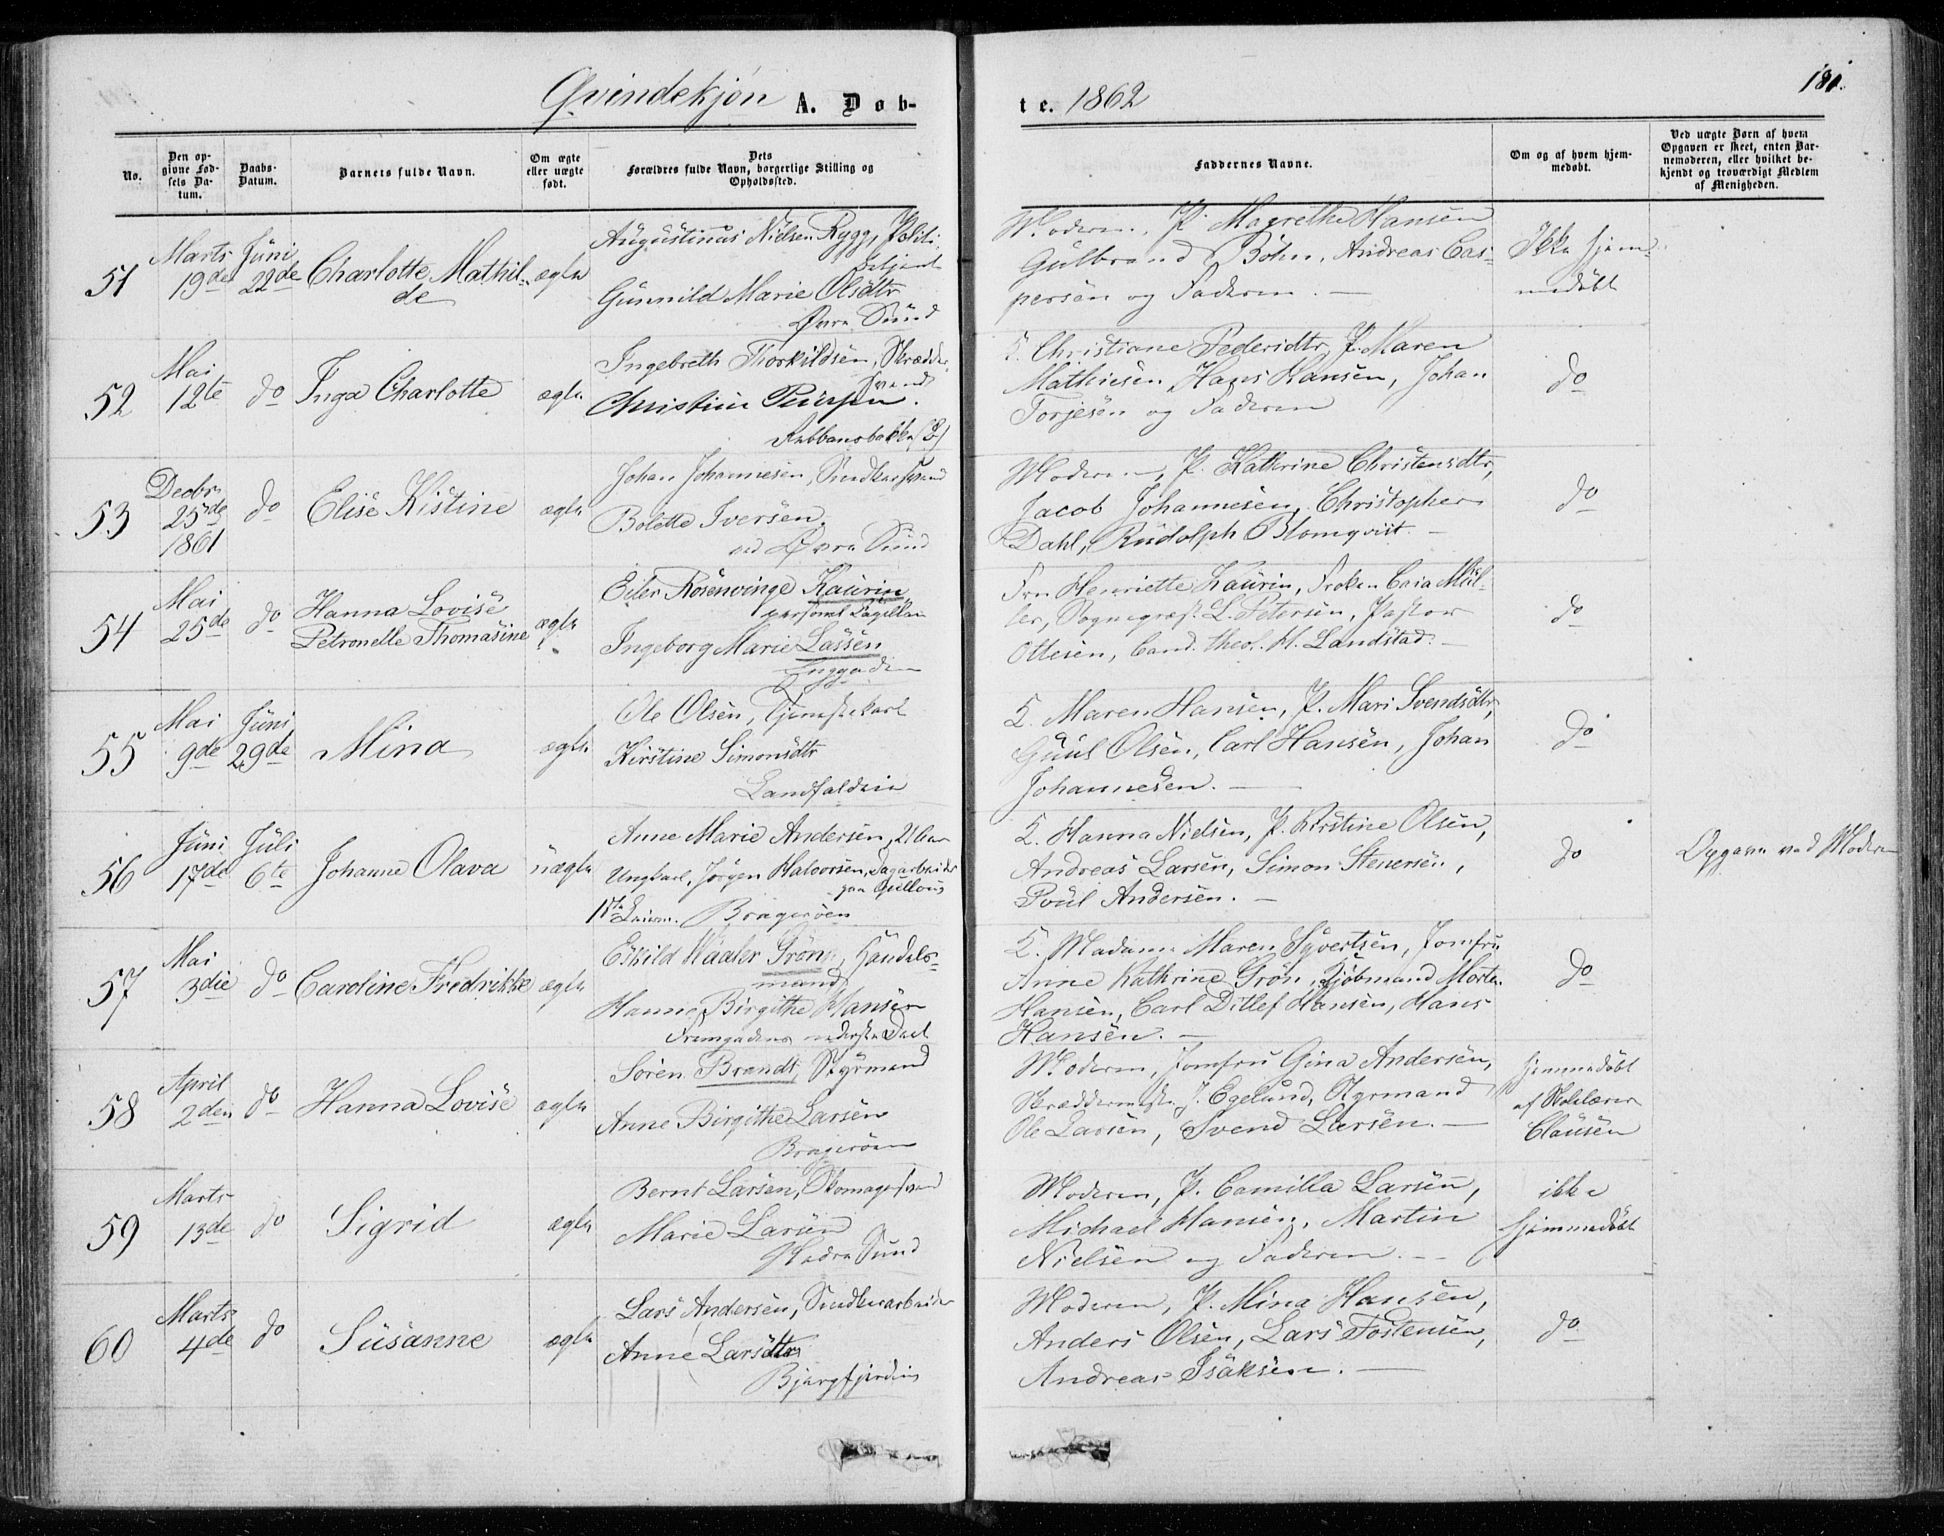 Qvindekjøn A. Døb-
te. 1862
181.
No.
Den op-
givne Fød-
sels Da-
tum.
Daabs-
Datum.
Barnets fulde Navn.
Om ægte
eller uægte
født.
Dets
Forældres fulde Navn, borgerlige Stilling og
Opholdssted.
Faddernes Navne.
Om og af hvem hjem-
medøbt.
Ved uægte Børn af hvem
Opgaven er skeet, enten Bar-
nemoderen, eller hvilket be-
kjendt og troværdigt Medlem
af Menigheden.
51
Marts
19de
Juni
22de
Charlotte Mathil-
de
ægte
Augustinus Nielsen Rygg, Politi-
betjent
Gunnild Marie Olsdtr
Øvre Sund
Moderen, P. Magrethe Hansen
Gulbrand Bøhn, Andreas Cas-
persen og Faderen. —
Ikke hjem-
medøbt
52
Mai
12te
do
Inga Charlotte
ægte
Ingebreth Thorkildsen, Skrædder-
svend
Christine
K. Christiane Pedersdtr, P. Maren
Mathiesen, Hans Hansen, Johan
Torjesen og Faderen
do
53
Decbr
25de
1861
do
Elise Kistine
ægte
Johan Johannesen, Snedkersvend
Bolette Iversen.
ved Øvre Sund
Moderen, P. Kathrine Christensdtr,
Jacob Johannesen, Christopher
Dahl, Rudolph Blomqvist. —
do
54
Mai
25de
do
Hanna Lovise
Petronelle Thomasine
ægte
Eiler Rosenvinge Kaurin
personel Capellan
Ingeborg Marie Lassen
Enggaden
Fru Henriette Kaurin, Frøken Caia Mül-
ler, Sognepræst L. Petersen, Pastor
Ottesen, Cand. theol. H. Landstad. —
do
55
Mai
9de
Juni
29de
Mina
ægte
Ole Olsen, Tjenestekarl
Kirstine Simonsdtr
Landfaldøen
K. Maren Hansen, P. Mari Svendsdtr,
Guul Olsen, Carl Hansen, Johan
Johannesen. —
do
56
Juni
17de
Juli
6te
Johanne Olava
uægte
Anne Marie Andersen, 21 Aar
Ungkarl, Jørgen Halvorsen, Sagarbeider
paa Gulloug
Bragerøen
K. Hanna Nielsen, P. Kirstine Olsen,
Andreas Larsen, Simon Stenersen,
Poul Andersen. —
do
Opgave ved Moderen
57
Mai
3die
do
Caroline Fredrikke
ægte
Eskild Waaler Grøn, Handels-
mand
Hanne Birgithe Hansen
Strømgadens nederste Deel
K. Madame Maren Syvertsen, Jomfru
Anne Kathrine Grøn, Kjøbmand Morten
Hansen, Carl Ditlef Hansen, Hans
Hansen. —
do
58
April
2den
do
Hanna Lovise
ægte
Søren Brandt, Styrmand
Anne Birgithe Larsen
Bragerøen
Moderen, Jomfru Gina Andersen,
Skræddermester J. Egelund, Styrmand
Ole Larsen, Svend Larsen. —
hjemmedøbt
af Skolelærer
Clausen
59
Marts
13de
do
Sigrid
ægte
Bernt Larsen, Skomagersvend
Marie Larsen
Nedre Sund
Moderen, P. Camilla Larsen,
Michael Hansen, Martin
Nielsen og Faderen. —
ikke
hjemmedøbt
60
Marts
4de
do
Susanne
ægte
Lars Andersen, Snedkerarbeider
Anne Larsdtr
Bjergfjerdingen
Moderen, P. Mina Hansen,
Anders Olsen, Lars Tostensen,
Andreas Isaksen. —
do